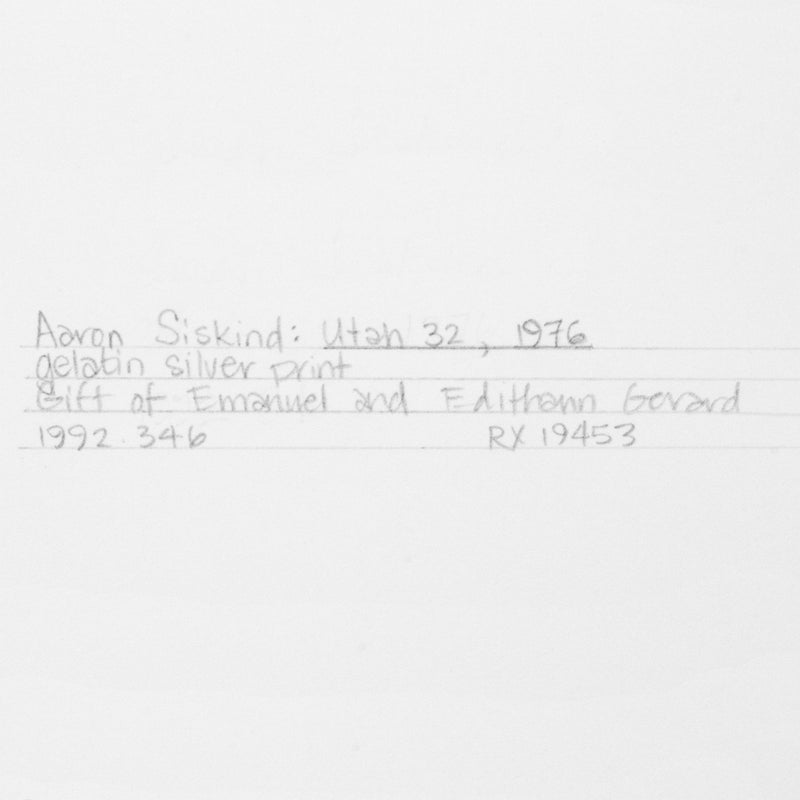 Aaron Siskind: Utah 32, 1976
gelatin silver print
Gift of Emanuel and Edithann Gerard
1992.346 RX 19453